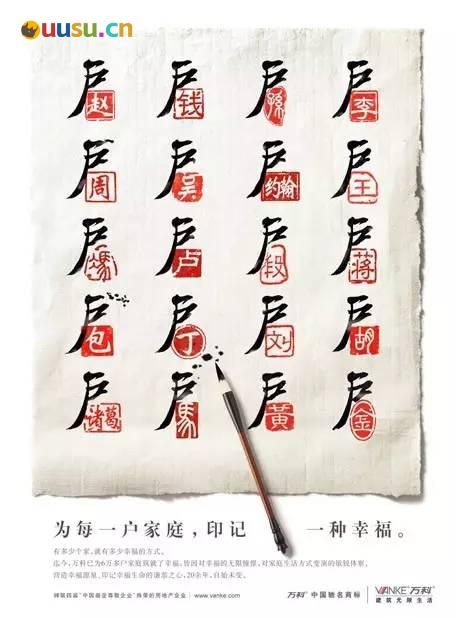 uusu.cn
户赵 户钱 户孫 户李
户周 户吴 户约翰 户王
户馮 户卢 户段 户蒋
户包 户丁 户刘 户胡
户诸葛 户馬 户黄 户金
为每一户家庭,印记 一种幸福。
有多少个家,就有多少幸福的方式。
迄今,万科已为6万多户家庭筑就了幸福,皆因对幸福的无限憧憬,对家庭生活方式变演的敏锐体察,
营造幸福源泉、印记幸福生命的谦恭之心,20余年,自始未变。
蝉联四届“中国最受尊敬企业”殊荣的房地产业业 www.vanke.com 万科 中国驰名商标 VANKE 万科
建筑无限生活